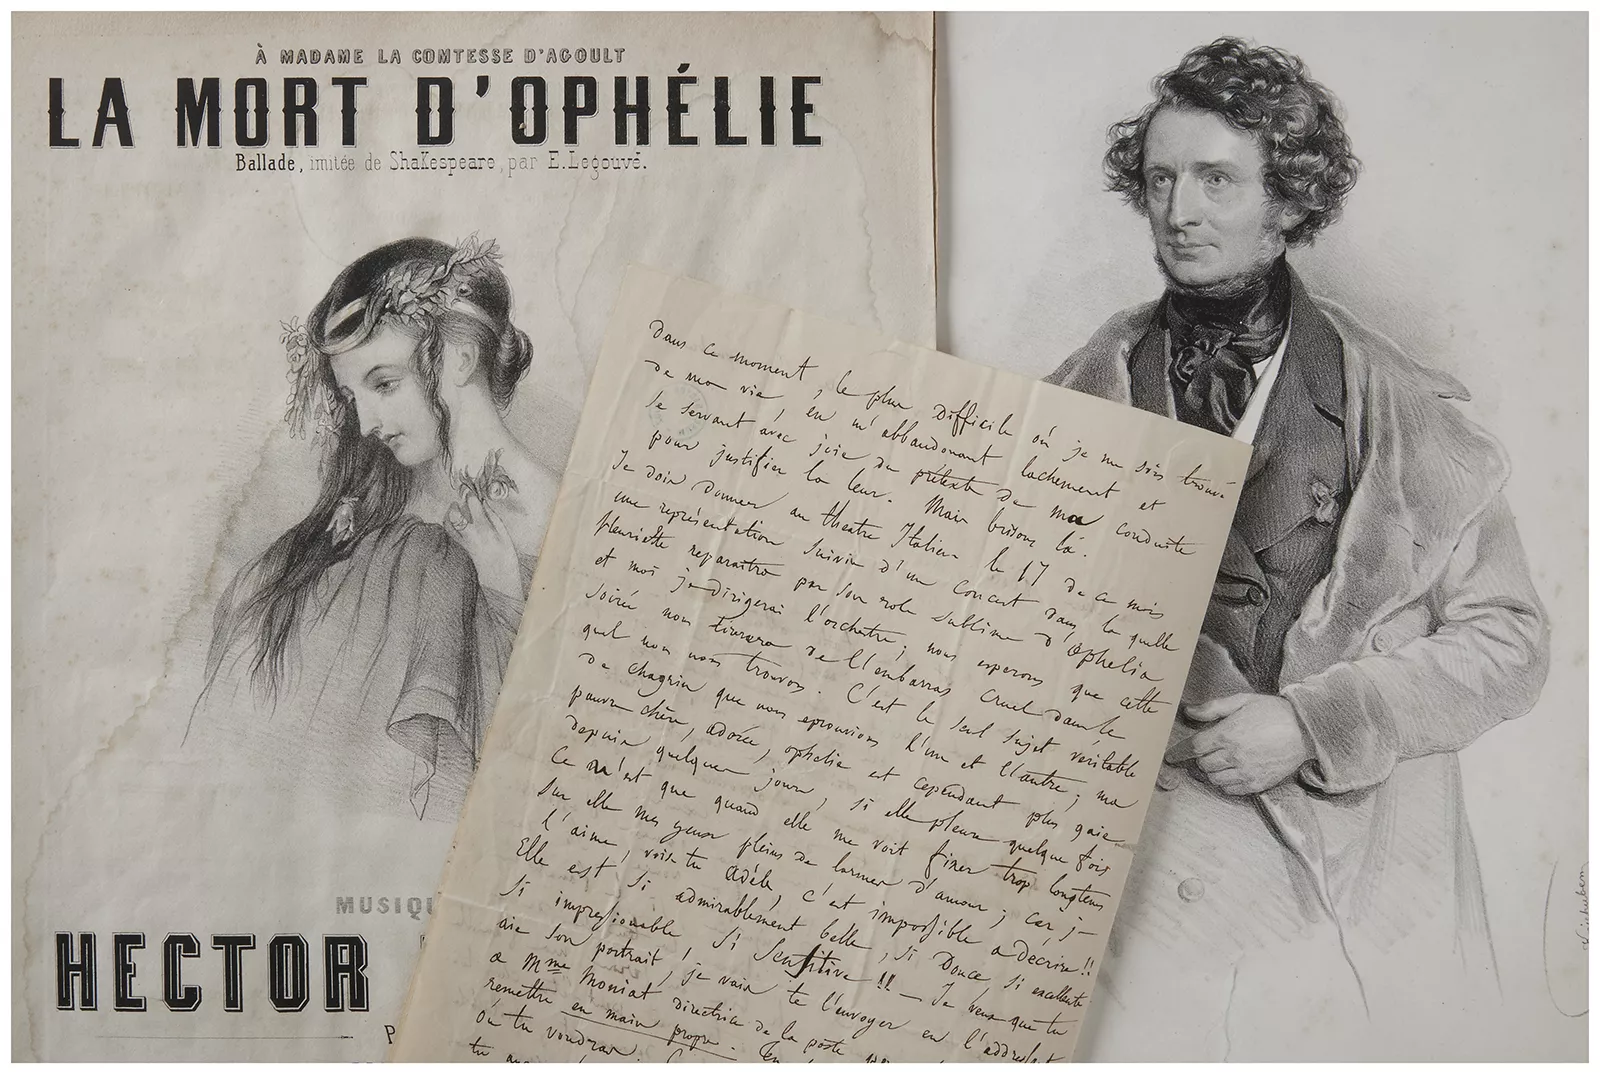 À MADAME LA COMTESSE D'AGOULT
LA MORT D'OPHÉLIE
Ballade, imitée de ShaKespeare, par E. Legouvé.
MUSIQU
HECTOR
P
Dans ce moment, le plus difficile où je me sois trouvé
de ma vie, en m'abbandonant lachement et
se servant avec joie du prétexte de ma conduite
pour justifier la leur. Mais brisons là.
Je dois donner au théatre Italien le 17 de ce mois
une représentation suivie d'un Concert dans la quelle
henriette reparaitra par son role sublime d'Ophelia
et moi je dirigerai l'orchestre; nous esperons que cette
soirée nous tirera de l'embarras cruel dans le
quel nous nous trouvons. C'est le seul sujet véritable
de chagrin que nous eprouvions l'un et l'autre; ma
pauvre chère, adorée, ophelie est cependant plus gaie
depuis quelques jours, si elle pleure quelque fois
Ce n'est que quand elle me voit fixer trop longtems
sur elle mes yeux pleins de larmes d'amour; car je
l'aime, vois tu Adèle, c'est impossible a décrire!!
Elle est si admirablement belle, si douce, si excellente
si impressionable si sensitive!! — Je veux que tu
aie son portrait, je vais te l'envoyer en l'addressant
a Mme Moniat directrice de la poste
remettre en main propre. En
où tu voudras.
tu